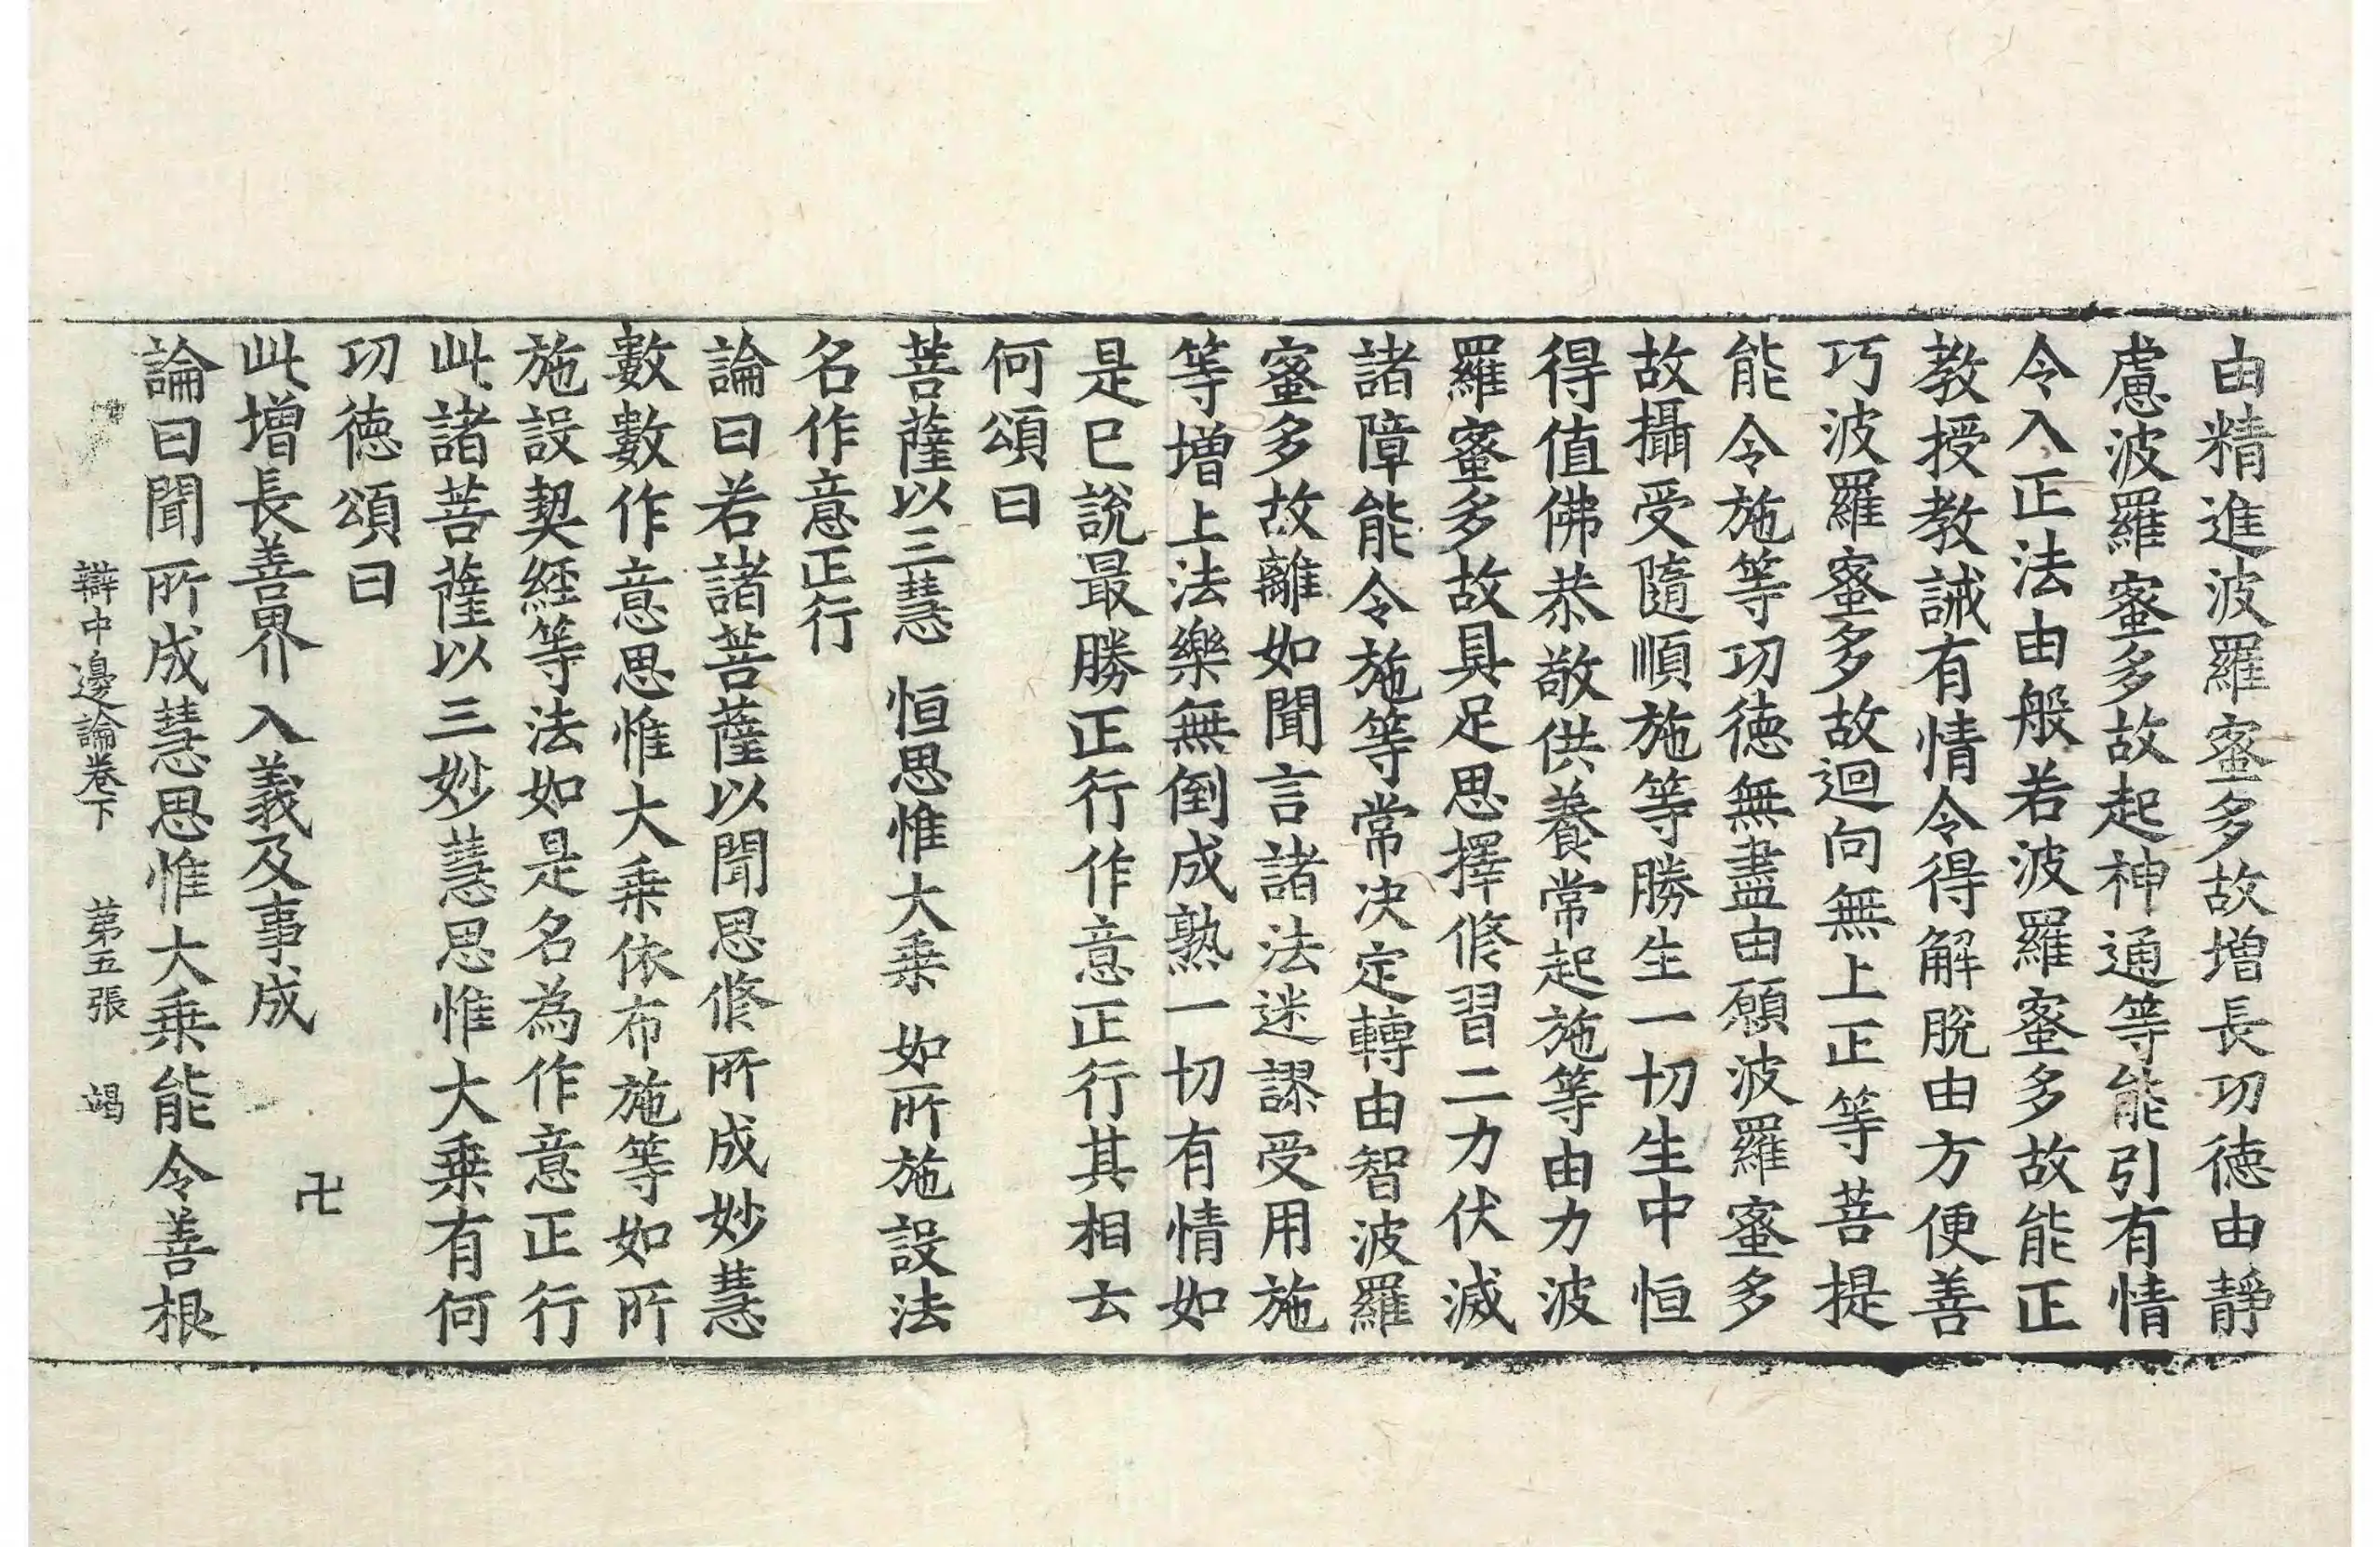 由精進波羅蜜多故増長功徳由靜
慮波羅蜜多故起神通等能引有情
令入正法由般若波羅蜜多故能正
教授教誡有情令得解脫由方便善
巧波羅蜜多故迴向無上正等菩提
能令施等功徳無盡由願波羅蜜多
故攝受隨順施等勝生一切生中恒
得值佛恭敬供養常起施等由力波
羅蜜多故具足思擇修習二力伏滅
諸障能令施等常决定轉由智波羅
蜜多故離如聞言諸法迷謬受用施
等增上法樂無倒成熟一切有情如
是已說最勝正行作意正行其相云
何頌曰
菩薩以三慧　恒思惟大乗　如所施設法
名作意正行
論曰若諸菩薩以聞思修所成妙慧
數數作意思惟大乗依布施等如所
施設契経等法如是名為作意正行
此諸菩薩以三妙慧思惟大乗有何
功徳頌曰
此增長善界　入義及事成
卍
論曰聞所成慧思惟大乗能令善根
辯中邊論卷下　第五張　竭